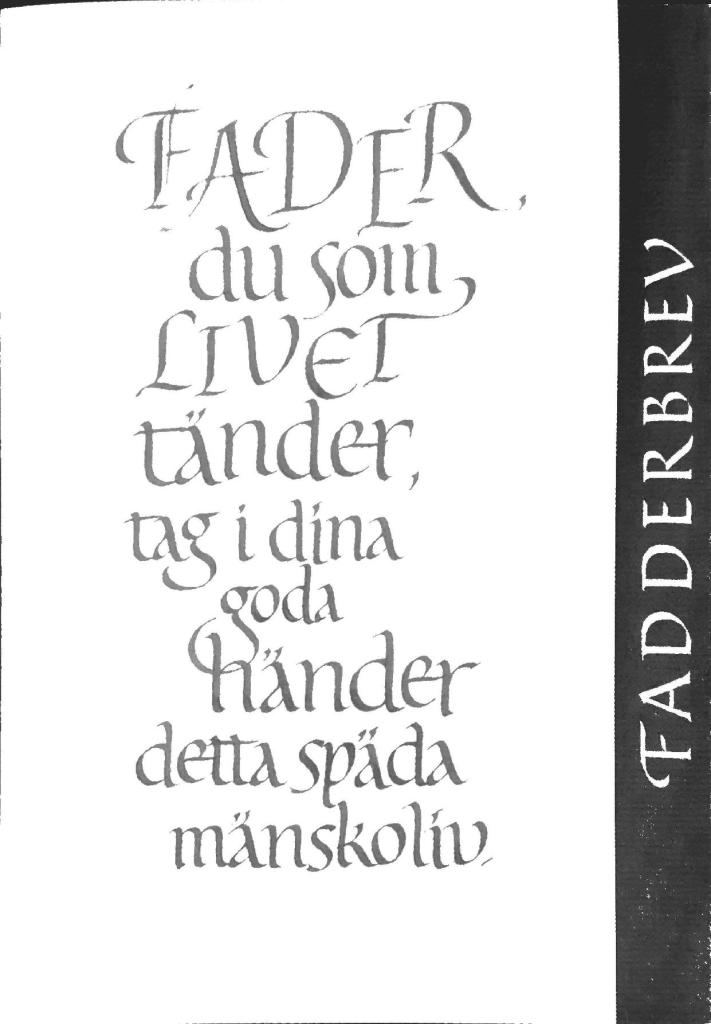 FADER,
du som
LIVET
tänder,
tag i dina
goda
händer
detta späda
mänskoliv.
FADDERBREV